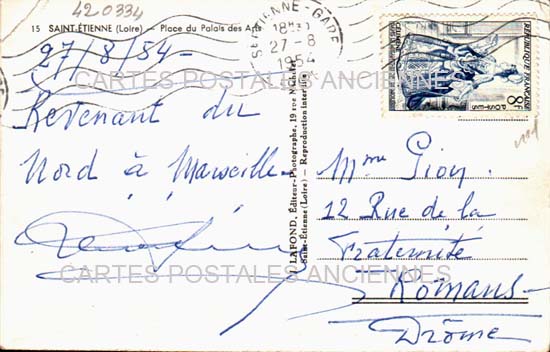 420334
15 SAINT-ÉTIENNE (Loire) — Place du Palais des Arts
27/8/54 -
Revenant du
Nord à Marseille.
LAFOND, Éditeur-Photographe, 19 rue
Saint-Étienne (Loire) - Reproduction interdite
St ETIENNE - GARE
18H
27 - 8
1954
REPUBLIQUE FRANÇAISE
POSTES
8F
Mme Gion
12 Rue de la
Fraternité
Romans -
Drôme
CARTES POSTALES ANCIENNES
CARTES POSTALES ANCIENNES